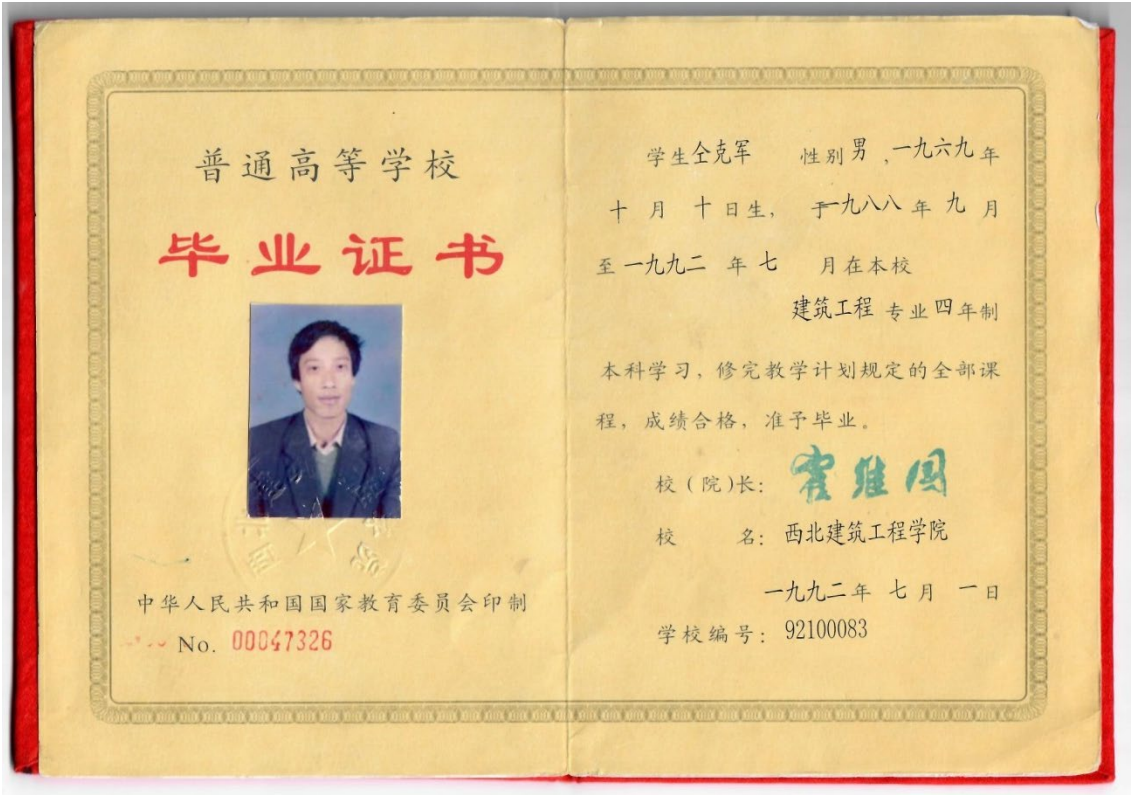 普通高等学校
毕业证书
中华人民共和国国家教育委员会印制
No. 00047326
学生仝克军 性别男,一九六九年
十月十日生, 于一九八八年九月
至一九九二年七月在本校
建筑工程专业四年制
本科学习,修完教学计划规定的全部课
程,成绩合格,准予毕业。
校(院)长: 霍维国
校名: 西北建筑工程学院
一九九二年七月一日
学校编号: 92100083